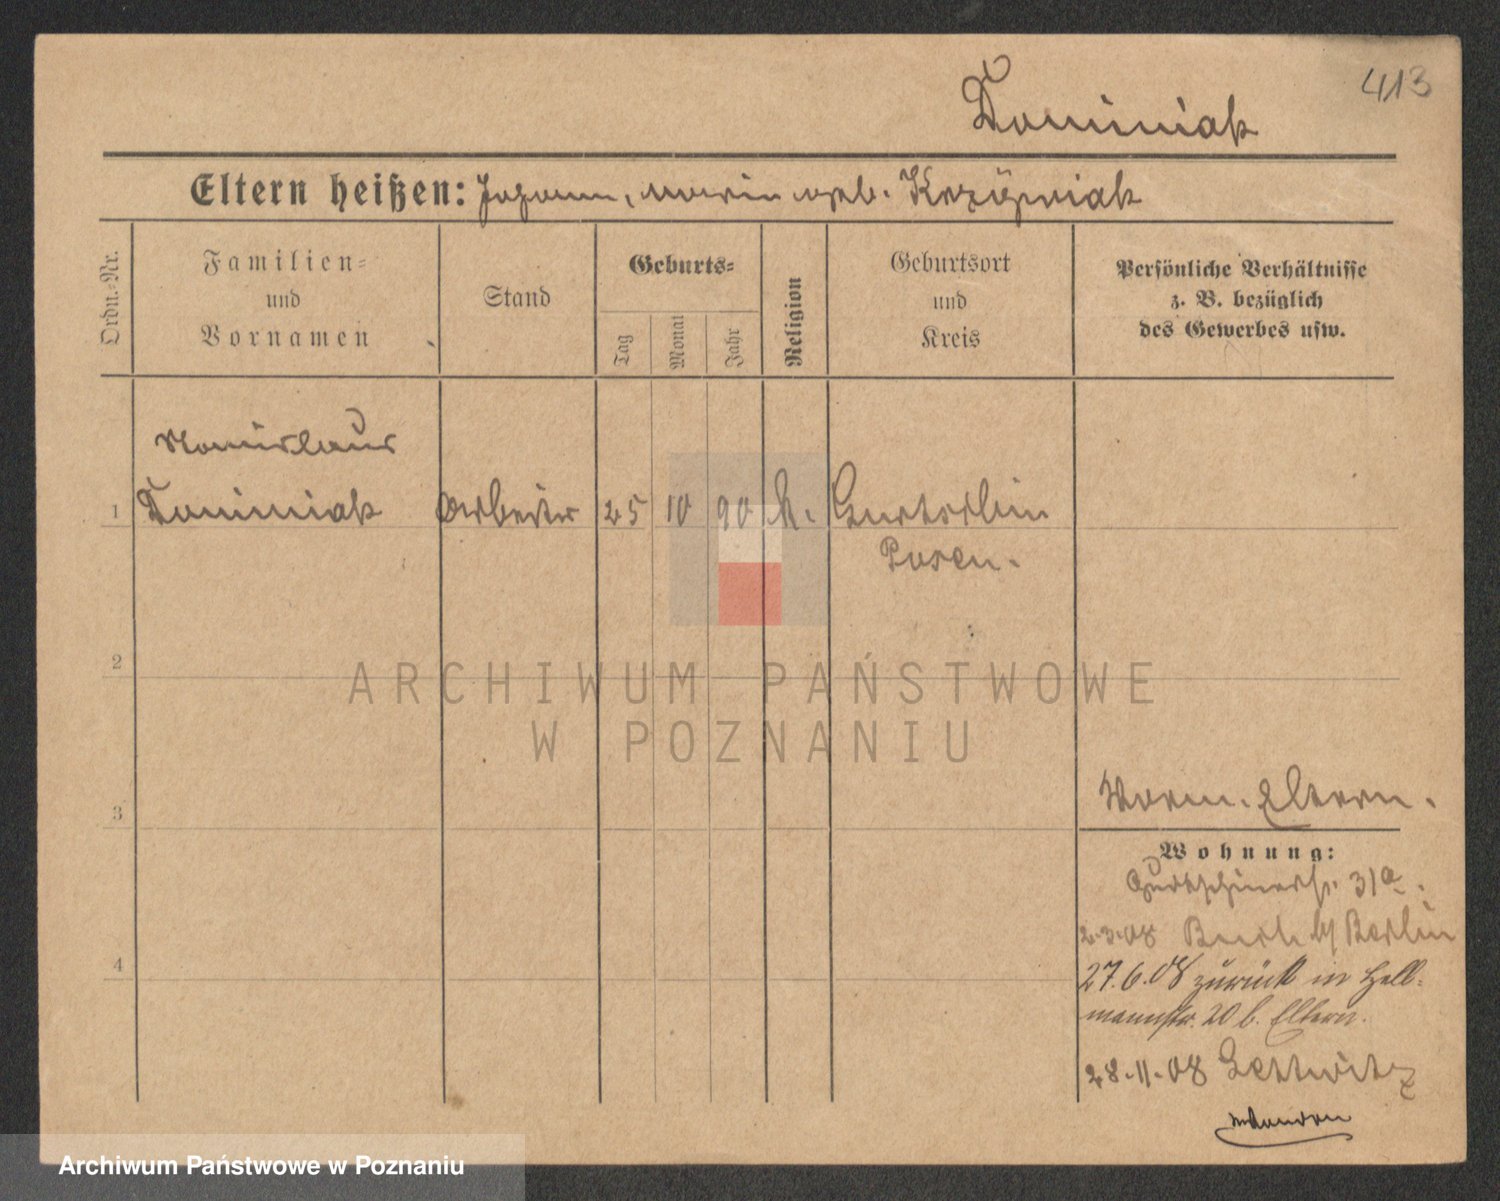 413
Dominiak
Eltern heißen: Johann, Maria geb. Krzyżniak
Ordn.-Nr.
Familien-
und
Vornamen
Stand
Geburts-
Tag
Monat
Jahr
Religion
Geburtsort
und
Kreis
Persönliche Verhältnisse
z. B. bezüglich
des Gewerbes usw.
1
Dominiak Arbeiter 25 10 90 k.
Posen.
2
3
4
Eltern.
Wohnung:
Gurtschinerstr. 31a.
2.3.08 Berlin
27.6.08 zurück in Hell-
mannstr. 20 b. Eltern.
28.11.08 Lettwitz
ARCHIWUM PAŃSTWOWE
W POZNANIU
Archiwum Państwowe w Poznaniu